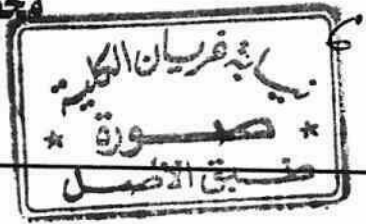 نيابة غريان الكلية
* صورة *
طبق الأصل